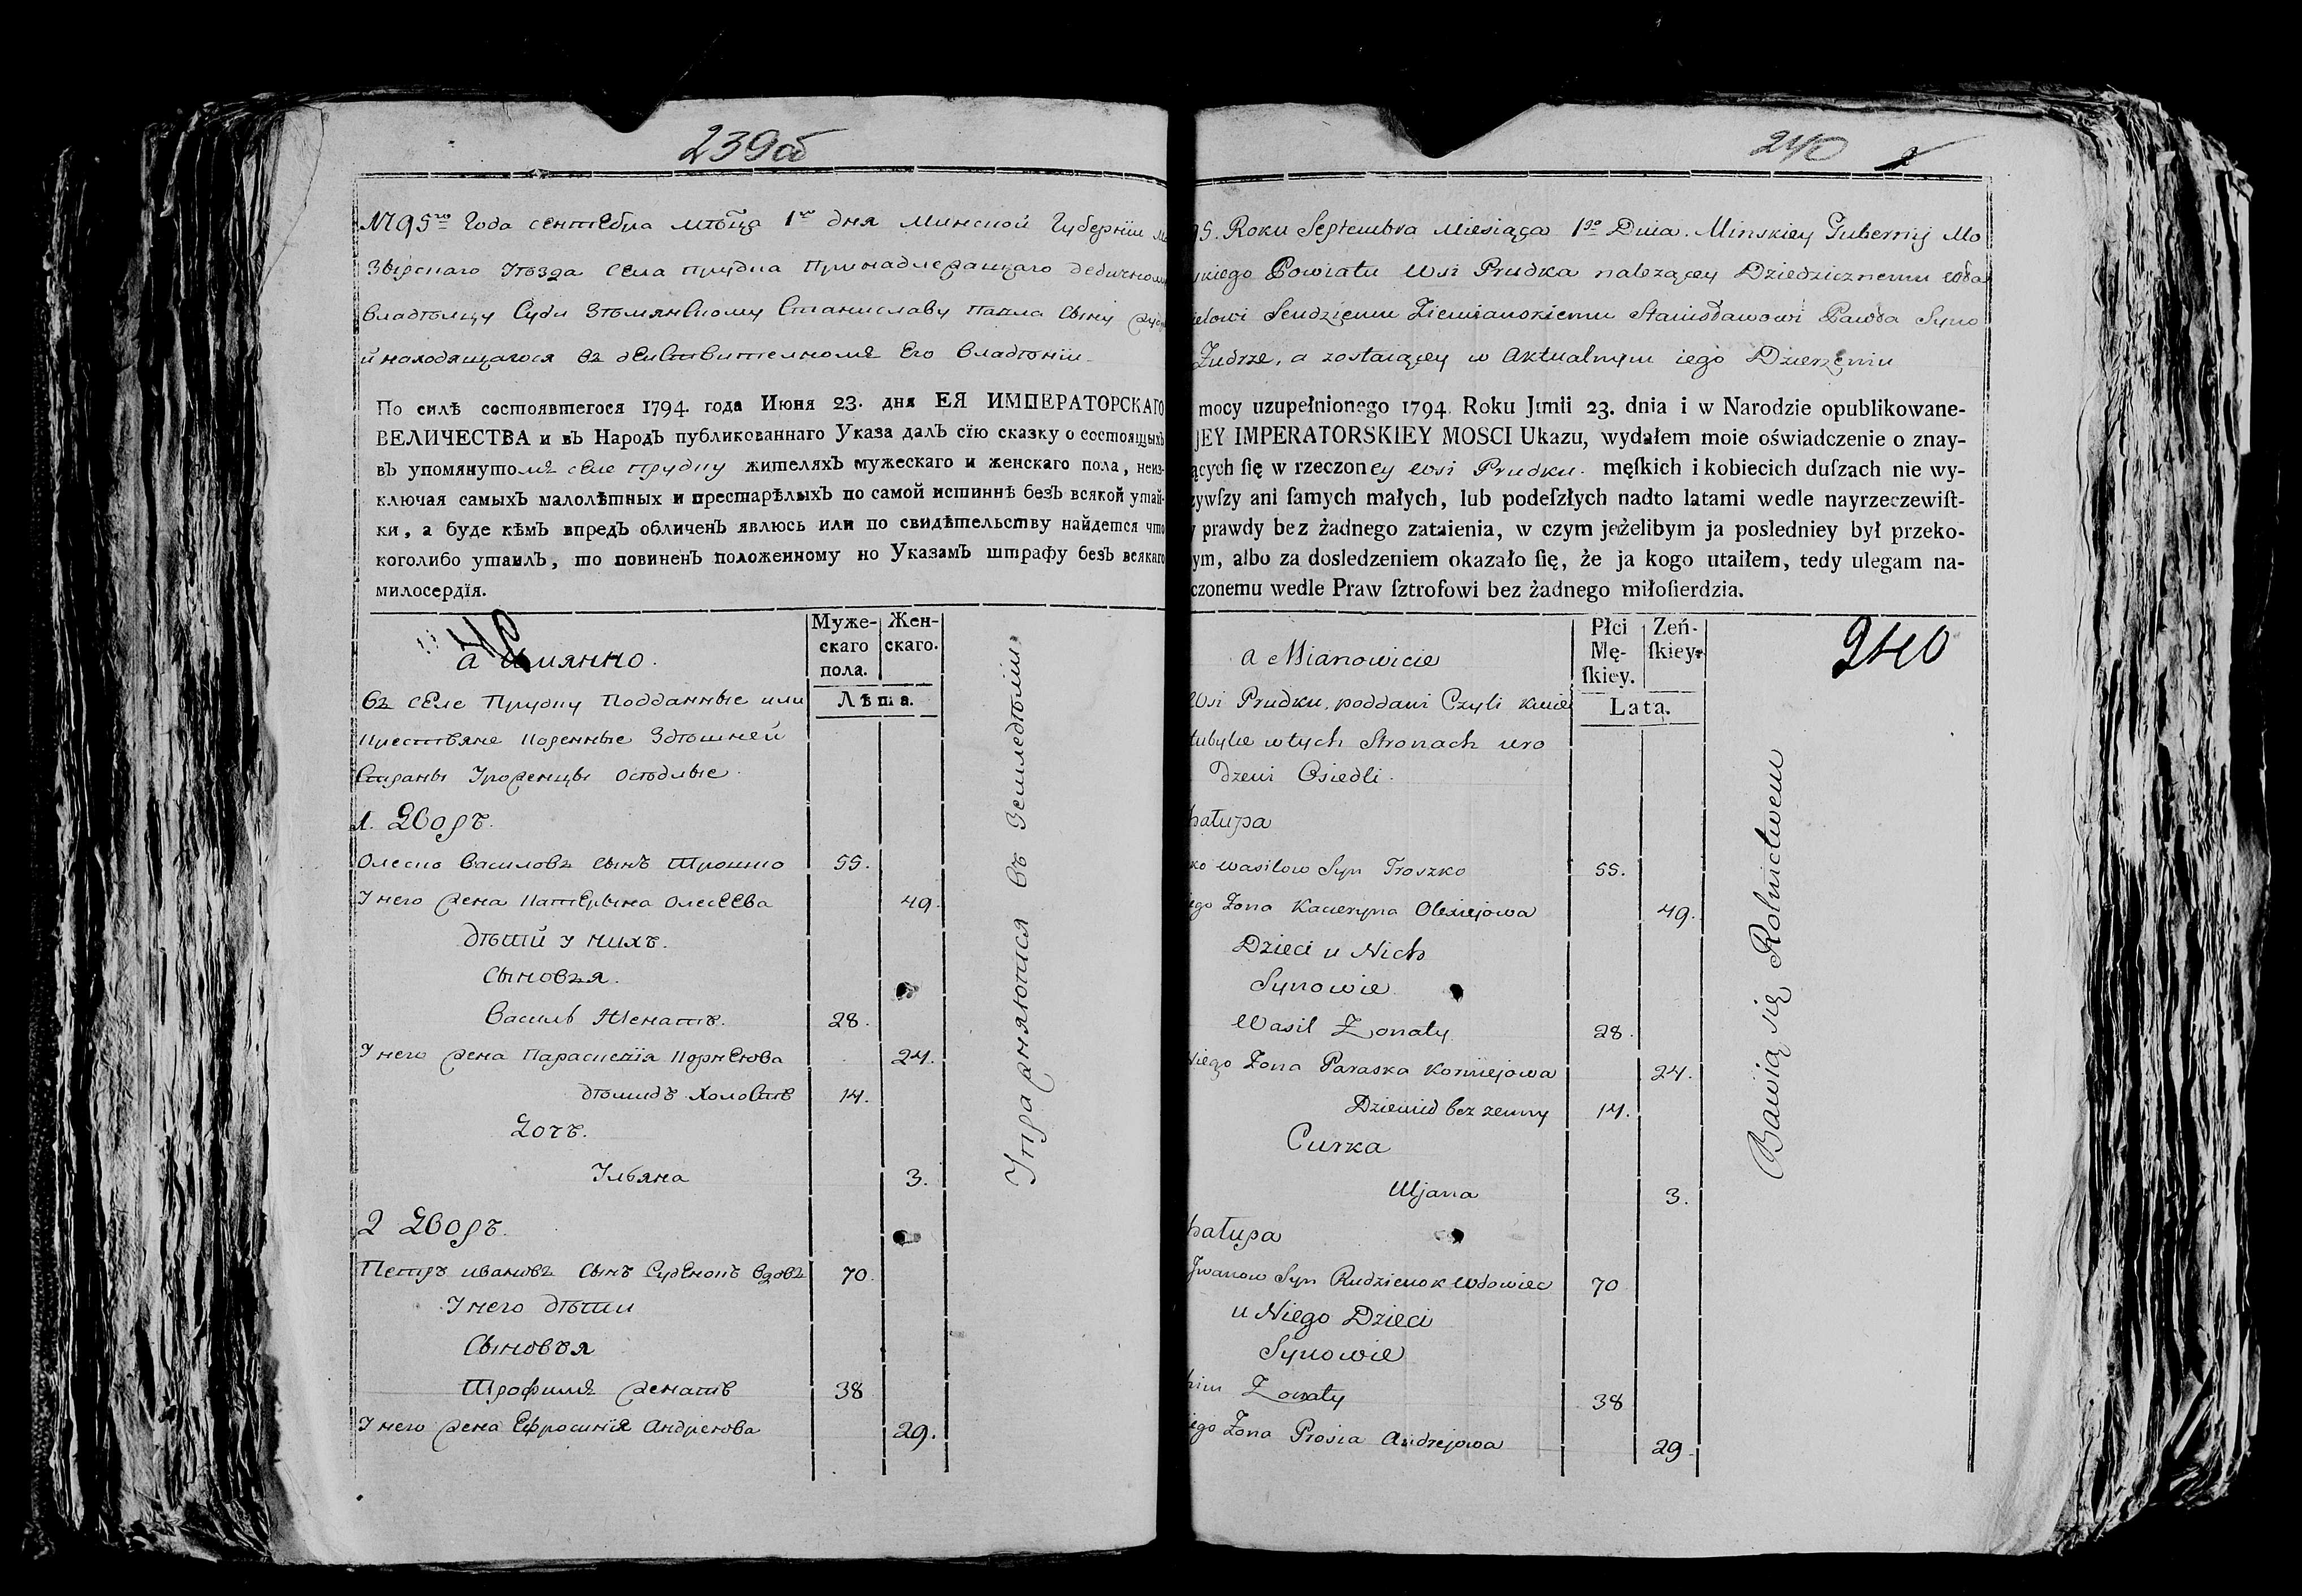 239об
1795го Года сентебра мѣсяца 1го дня Минской Губернїи Мо
зырскаго Уѣзда села Прудка Принадлежащаго дедичному
владѣлцу Судьи Зѣмянскому Станиславу Павла Сыну
й находящагося въ действителномъ Его владѣнїи
По силѣ состоявшегося 1794. года Июня 23. дня ЕЯ ИМПЕРАТОРСКАГО
ВЕЛИЧЕСТВА и въ Народъ публикованнаго Указа далъ сїю сказку о состоящыхъ
въ упомянутомъ селе Прудку жителяхъ мужескаго и женскаго пола, неиз-
ключая самыхъ малолѣтныхъ и престарѣлыхъ по самой истиннѣ безъ всякой утай-
ки, а буде кѣмъ впредъ обличенъ явлюсь или по свидѣтельству найдется что
коголибо утаилъ, то повиненъ положенному по Указамъ штрафу безъ всякаго
милосердїя.
Муже-
скаго
пола.
Жен-
скаго.
Лѣта.
а имянно.
въ селе Прудку Подданные или
Крестьяне Коренные Здѣшней
Страны Уроженцы осѣдлые
1. Дворъ.
Олеско Василовъ сынъ Трошко 55.
У него жена Катерына Олесеева 49.
дѣтй у нихъ.
Сыновья.
Василь Женатъ. 28.
У него жена Параскевїя Корнеева 24.
дѣмидъ Холостъ 14.
Дочъ.
Ульяна 3.
2 Дворъ.
Петръ ивановъ сынъ Вдовъ 70.
У него дѣти
Сыновъя
Трофимъ женатъ 38
У него жена Ефросинїя Андреева 29.
Упражняются въ Земледѣлїи
240
95. Roku Septembra Miesiąca 1go Dnia. Minskiey Gubernij Mo
skiego Powiatu wsi Prudka należącey Dziedzicznemu wła
ielowi Sendziemu Ziemianskiemu Stanisławowi Pawła Syno
Zudrze, a zostaiącey w Aktualnym iego Dzierzeniu
mocy uzupełnionego 1794. Roku Junii 23. dnia i w Narodzie opublikowane-
JEY IMPERATORSKIEY MOSCI Ukazu, wydałem moie oświadczenie o znay-
ących ſię w rzeczoney wsi Prudku. męſkich i kobiecich duſzach nie wy-
zywſzy ani ſamych małych, lub podeſzłych nadto latami wedle nayrzeczewiſt-
y prawdy bez żadnego zataienia, w czym jeżelibym ja posledniey był przeko-
ym, albo za dosledzeniem okazało ſię, że ja kogo utaiłem, tedy ulegam na-
czonemu wedle Praw ſztrofowi bez żadnego miłoſierdzia.
Płci
Mę-
ſkiey.
Zeń-
ſkiey.
Lata.
240
a Mianowicie
Wsi Prudku, poddani Czyli kmie
tubylce w tych Stronach uro
dzeni Osiedli.
hałupa
ko Wasilow Syn Troszko 55.
iego Zona Kacieryna Olexiejowa 49.
Dzieci u Nich
Synowie
Wasil Zonaty 28.
Niego Zona Paraska Korniejowa 24.
Dziemid bez zenny 14.
Curka
Uljana 3.
hałupa
Jwanow Syn Rudzienok Wdowiec 70
u Niego Dzieci
Synowie
him Zonaty 38
iego Zona Prosia Andrejowa 29.
Bawią się Rolnictwem